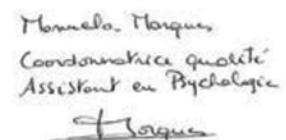 Manuela Marques
Coordonnatrice qualité
Assistant en Psychologie
Marques